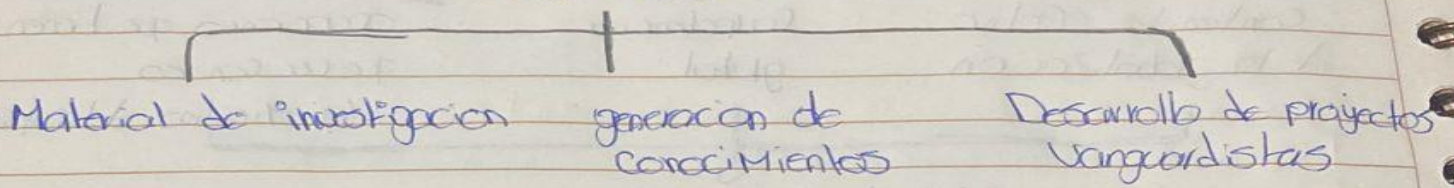 Material de investigacion
generacion de
conocimientos
Desarrollo de proyectos
vanguardistas